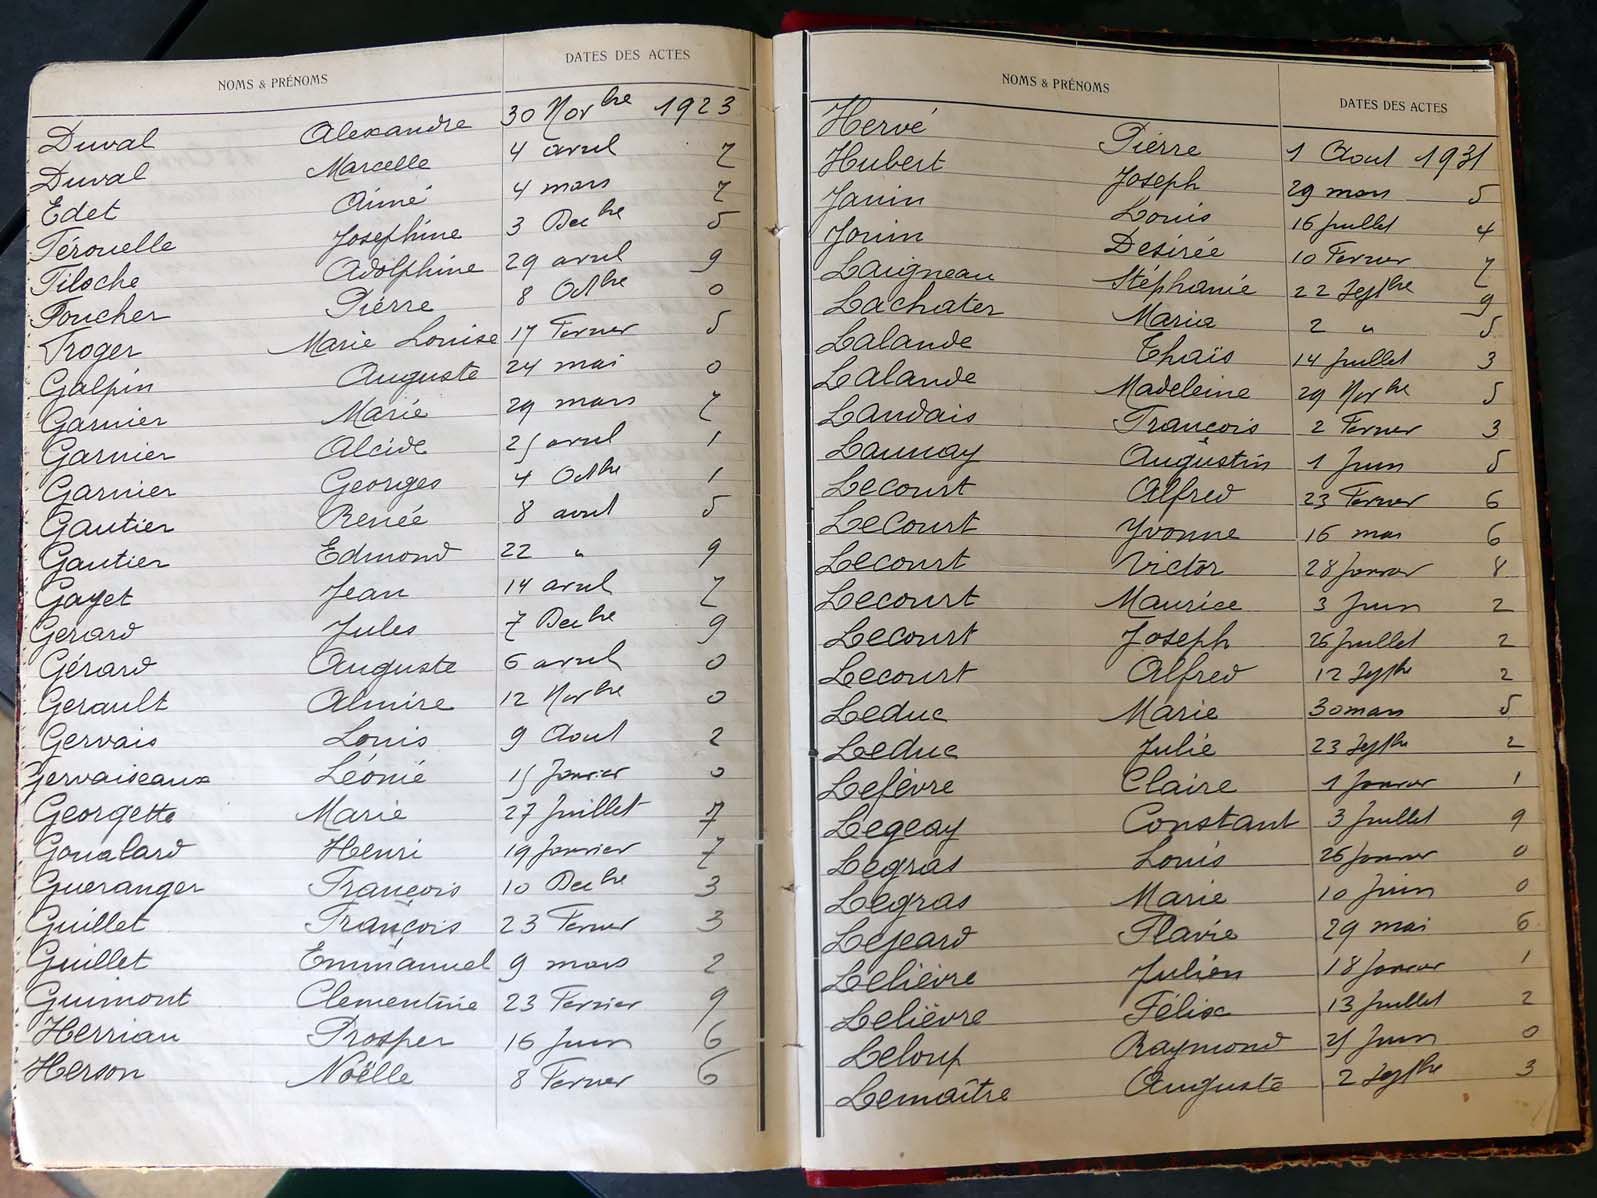 NOMS & PRÉNOMS DATES DES ACTES
Duval Alexandre 30 Novbre 1923
Duval Marcelle 4 avril 7
Edet Aimé 4 mars 7
Férouelle Joséphine 3 Decbre 5
Filoche Adolphine 29 avril 9
Foucher Pierre 8 Octbre 0
Froger Marie Louise 17 Fevrier 5
Galpin Auguste 24 mai 0
Garnier Marie 29 mars 7
Garnier Alcide 25 avril 1
Garnier Georges 4 Octbre 1
Gautier Renée 8 avril 5
Gautier Edmond 22 " 9
Gayet Jean 14 avril 7
Gerard Jules 7 Decbre 9
Gérard Auguste 6 avril 0
Gerault Almire 12 Novbre 0
Gervais Louis 9 Aout 2
Gervaiseaux Léonie 15 Janvier 0
Georgette Marie 27 Juillet 7
Goualard Henri 19 Janvier 7
Gueranger François 10 Decbre 3
Guillet François 23 Fevrier 3
Guillet Emmanuel 9 mars 2
Guimont Clementine 23 Fevrier 9
Herriau Prosper 16 Juin 6
Herson Noëlle 8 Fevrier 6
NOMS & PRÉNOMS DATES DES ACTES
Hervé Pierre 1 Aout 1931
Hubert Joseph 29 mars 5
Janin Louis 16 Juillet 4
Jouin Desirée 10 Fevrier 7
Laigneau Stéphanie 22 Septbre 9
Lachater Maria 2 " 5
Lalande Thaïs 14 Juillet 3
Lalande Madeleine 29 Novbre 5
Landais François 2 Fevrier 3
Launay Augustin 1 Juin 5
Lecourt Alfred 23 Fevrier 6
LeCourt Yvonne 16 mai 6
Lecourt Victor 28 Janvier 8
Lecourt Maurice 3 Juin 2
Lecourt Joseph 26 Juillet 2
Lecourt Alfred 12 Septbre 2
Leduc Marie 30 mars 5
Leduc Julie 23 Septbre 2
Lefèvre Claire 1 Janvier 1
Legeay Constant 3 Juillet 9
Legras Louis 26 Janvier 0
Legras Marie 10 Juin 0
Lejeard Flavie 29 mai 6
Lelièvre Julien 18 Janvier 1
Lelièvre Félix 13 Juillet 2
Leloup Raymond 25 Juin 0
Lemaître Auguste 2 Septbre 3